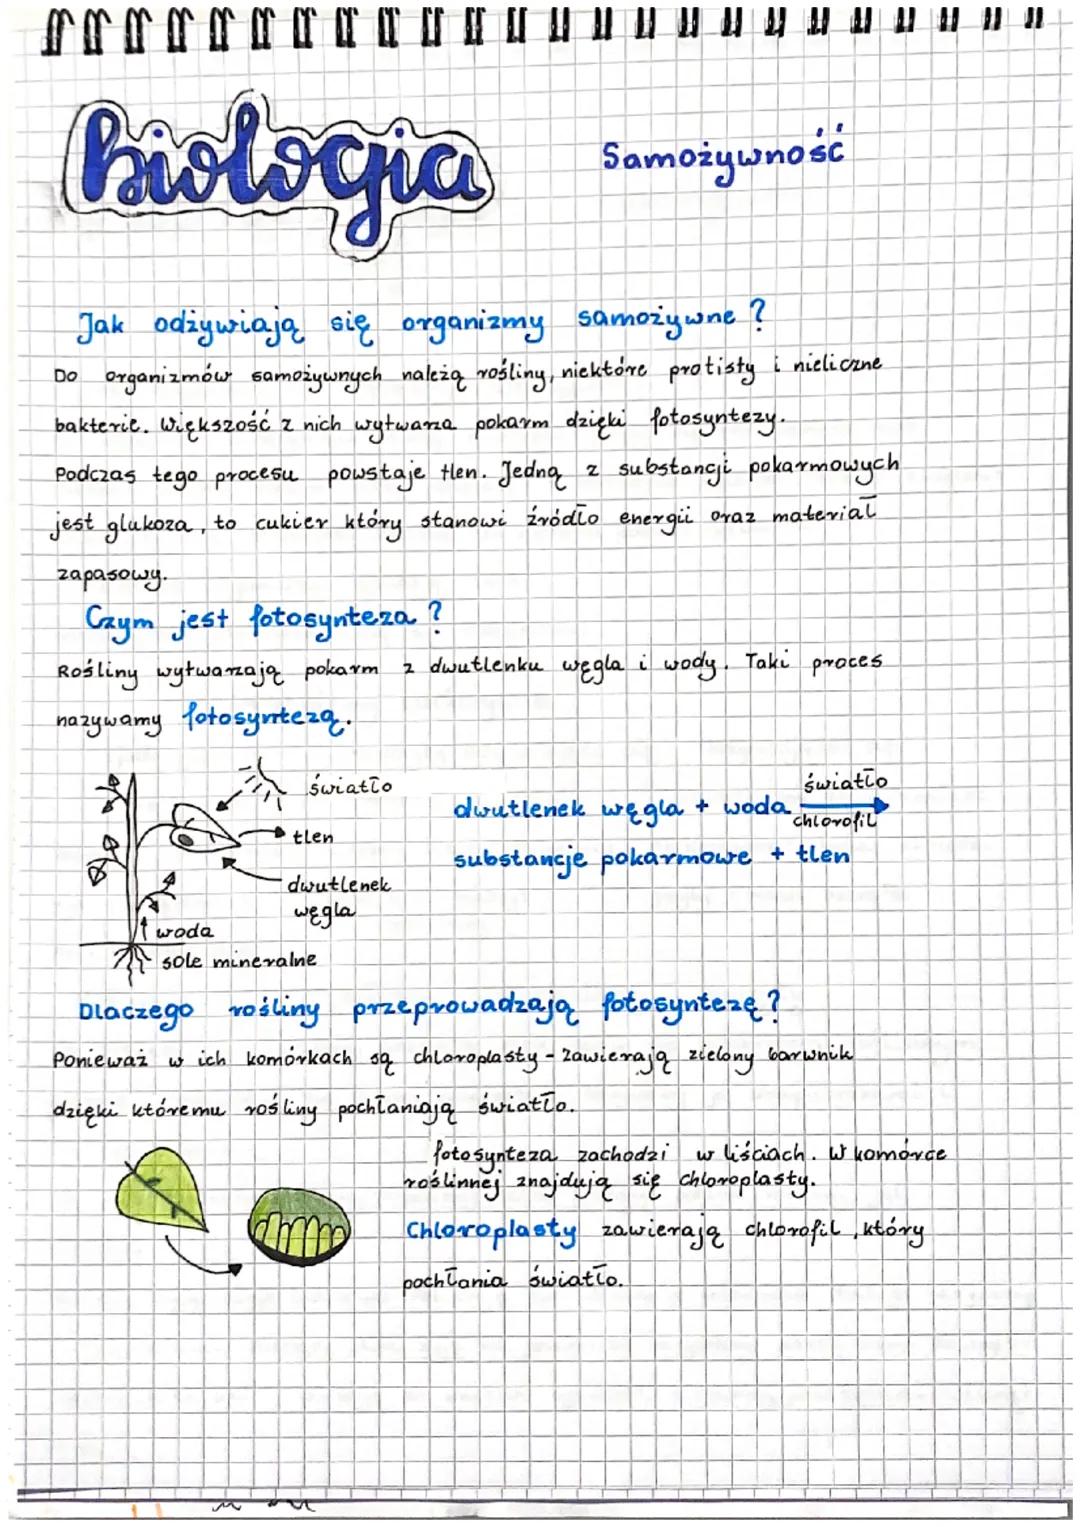 biologia
Samożywność
Jak odżywiają się organizmy samożywne?
Do organizmów samożywnych należą rośliny, niektóre protisty i nieliczne
bakterie. Większość z nich wytwarza pokarm dzięki fotosyntezy.
Podczas tego procesu powstaje tlen. Jedną z substancji pokarmowych
jest glukoza, to cukier który stanowi źródło energii oraz materiał
zapasowy.
Czym jest fotosynteza?
Rośliny wytwarzają pokarm z dwutlenku węgla i wody. Taki proces
nazywamy fotosyntezą.
światło
tlen
dwutlenek
węgla
woda
sole mineralne
dwutlenek węgla + woda światło
chlorofil
substancje pokarmowe + tlen
Dlaczego rośliny przeprowadzają fotosyntezę?
Ponieważ w ich komórkach są chloroplasty - zawierają zielony barwnik
dzięki któremu rośliny pochłaniają światło.
fotosynteza zachodzi w liściach. W komórce
roślinnej znajdują się chloroplasty.
Chloroplasty zawierają chlorofil, który
pochłania światło.